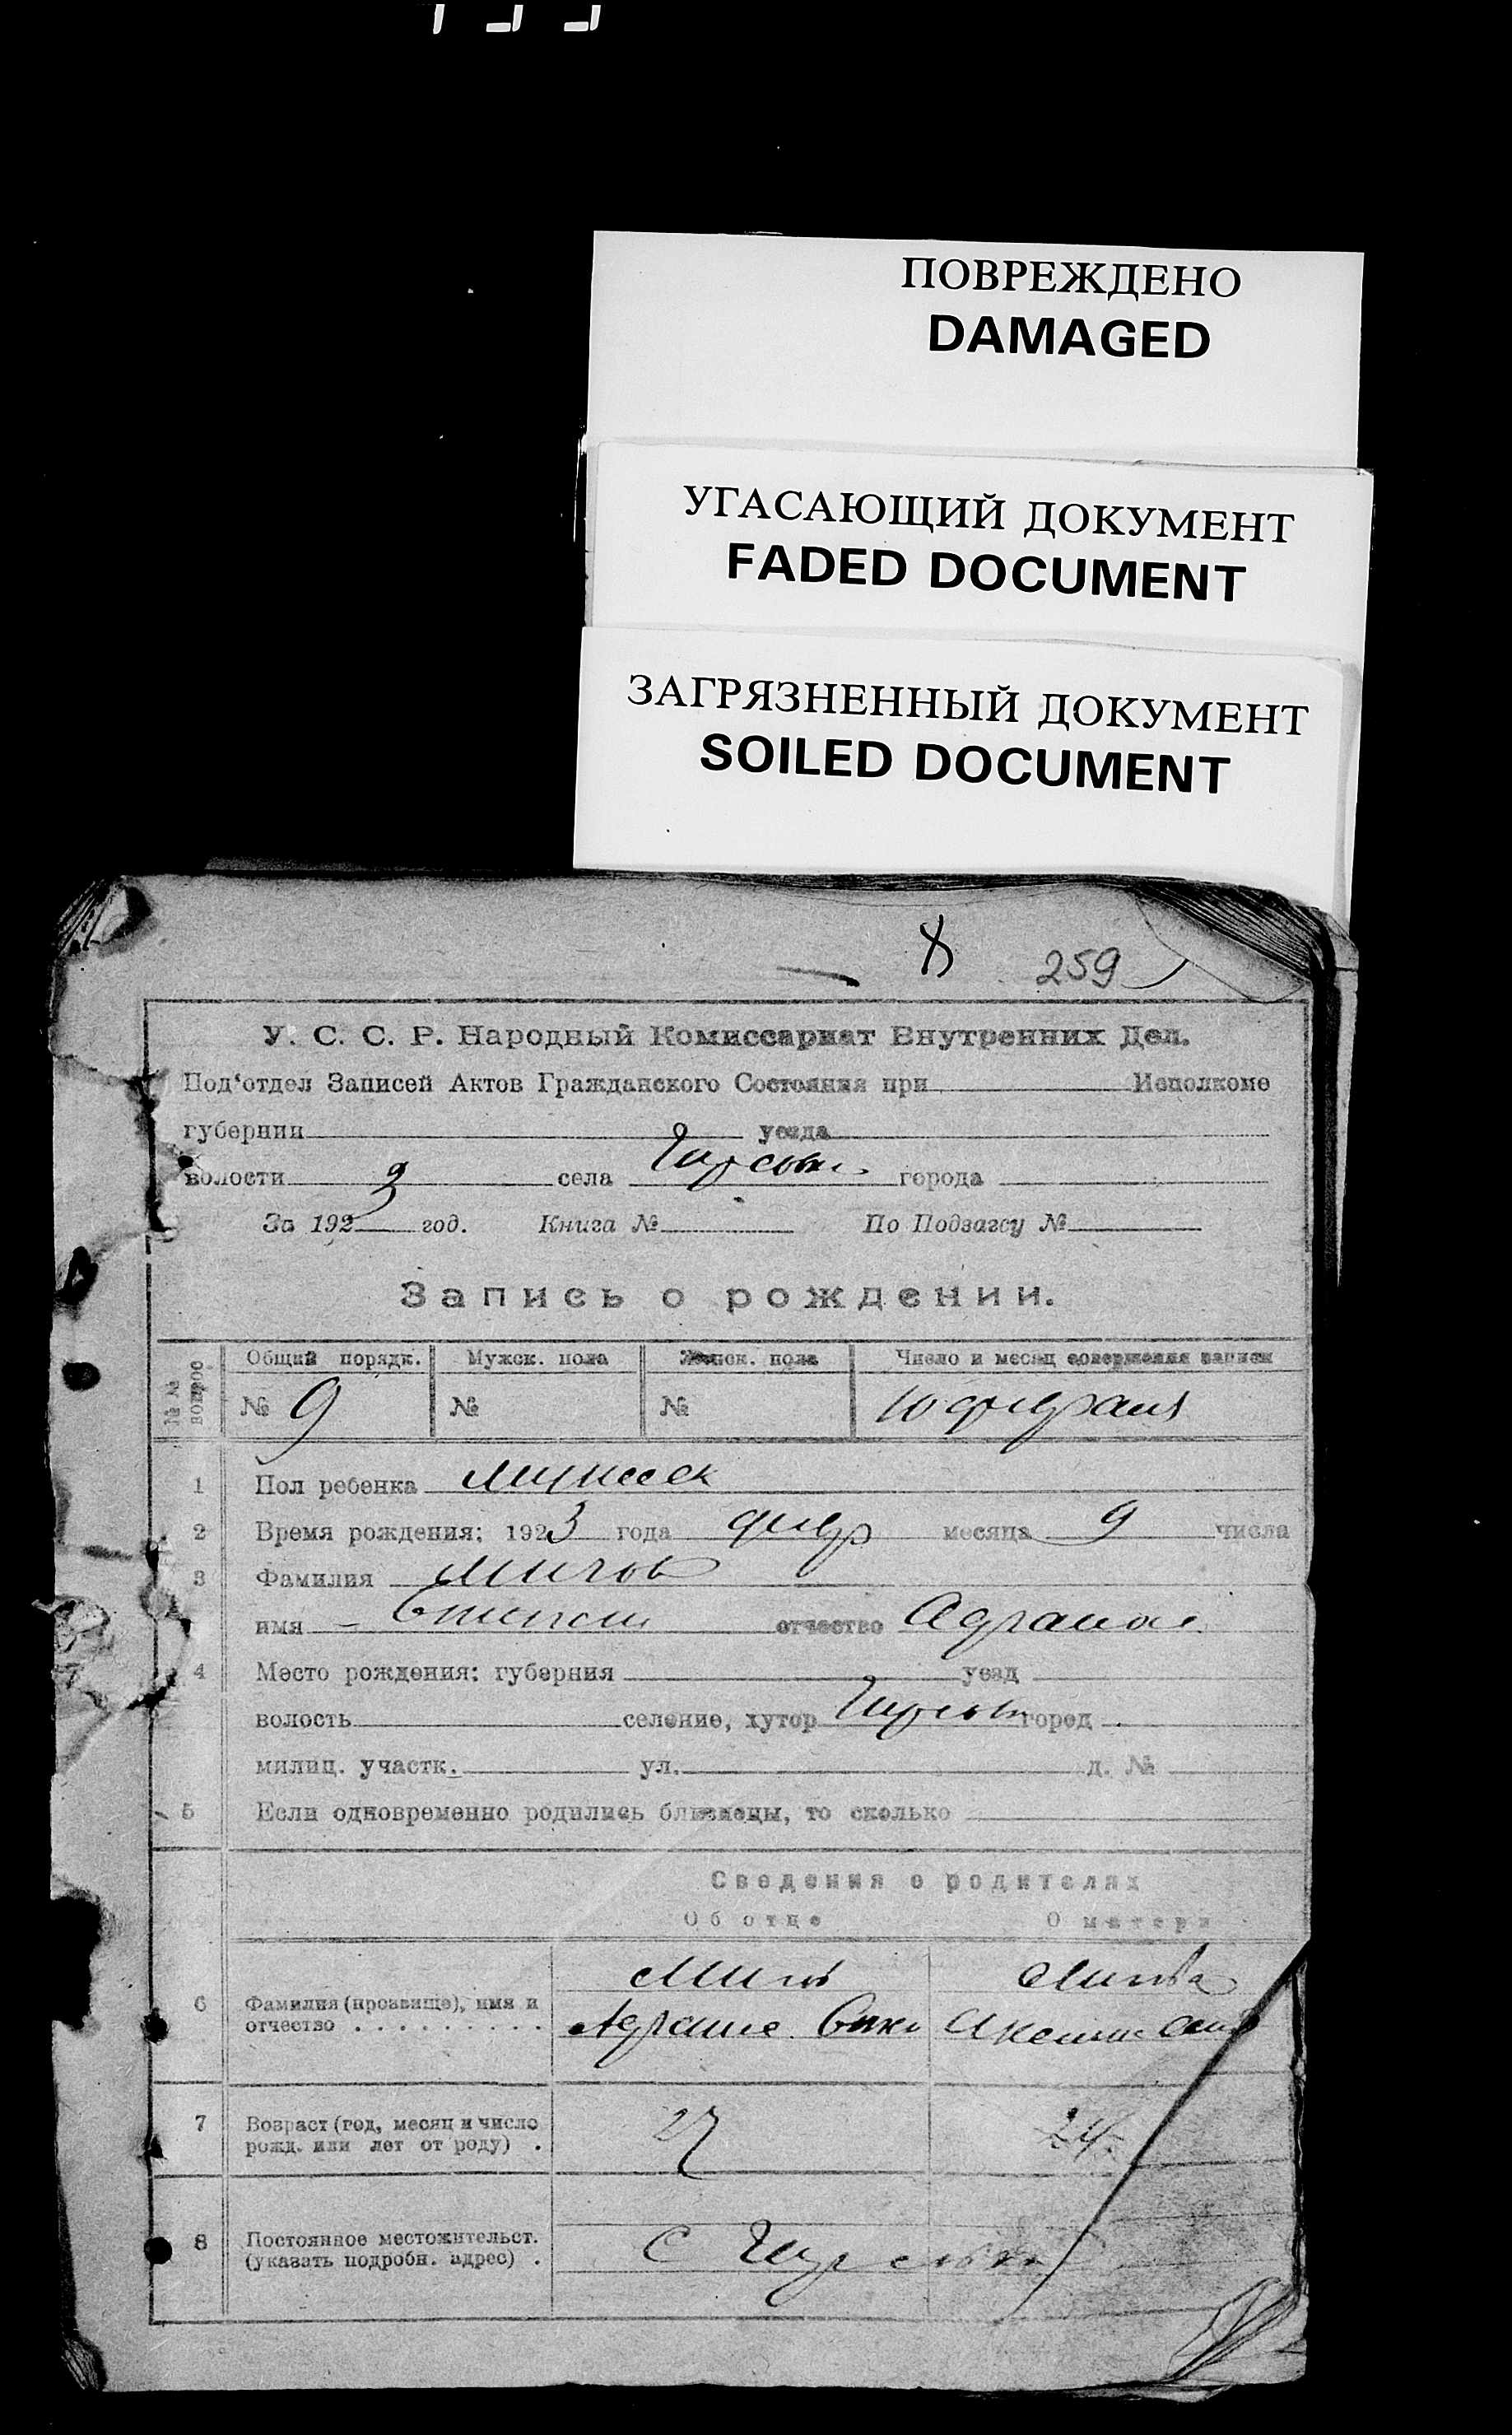 ПОВРЕЖДЕНО
DAMAGED
УГАСАЮЩИЙ ДОКУМЕНТ
FADED DOCUMENT
ЗАГРЯЗНЕННЫЙ ДОКУМЕНТ
SOILED DOCUMENT
259
У. С. С. Р. Народный Комиссариат Внутренних Дел.
Под'отдел Записей Актов Гражданского Состояния при Исполкоме
губернии уезда
волости села города
За 1923 год. Книга № По Подзагсу №
Запись о рождении.
№№ вопрос Общий порядк. Мужск. пола Женск. пола Число и месяц совершения записи
№ 9 № № 10 февраля
1 Пол ребенка мужск
2 Время рождения: 1923 года февр месяца 9 числа
3 Фамилия
имя отчество
4 Место рождения: губерния уезд
волость селение, хутор город
милиц. участк. ул. д. №
5 Если одновременно родились близнецы, то сколько
Сведения о родителях
Об отце О матери
6 Фамилия (прозвище), имя и
отчество . . . . . . . . .
7 Возраст (год, месяц и число
рожд. или лет от роду) . 27 24
8 Постоянное местожительст.
(указать подробн. адрес) . С